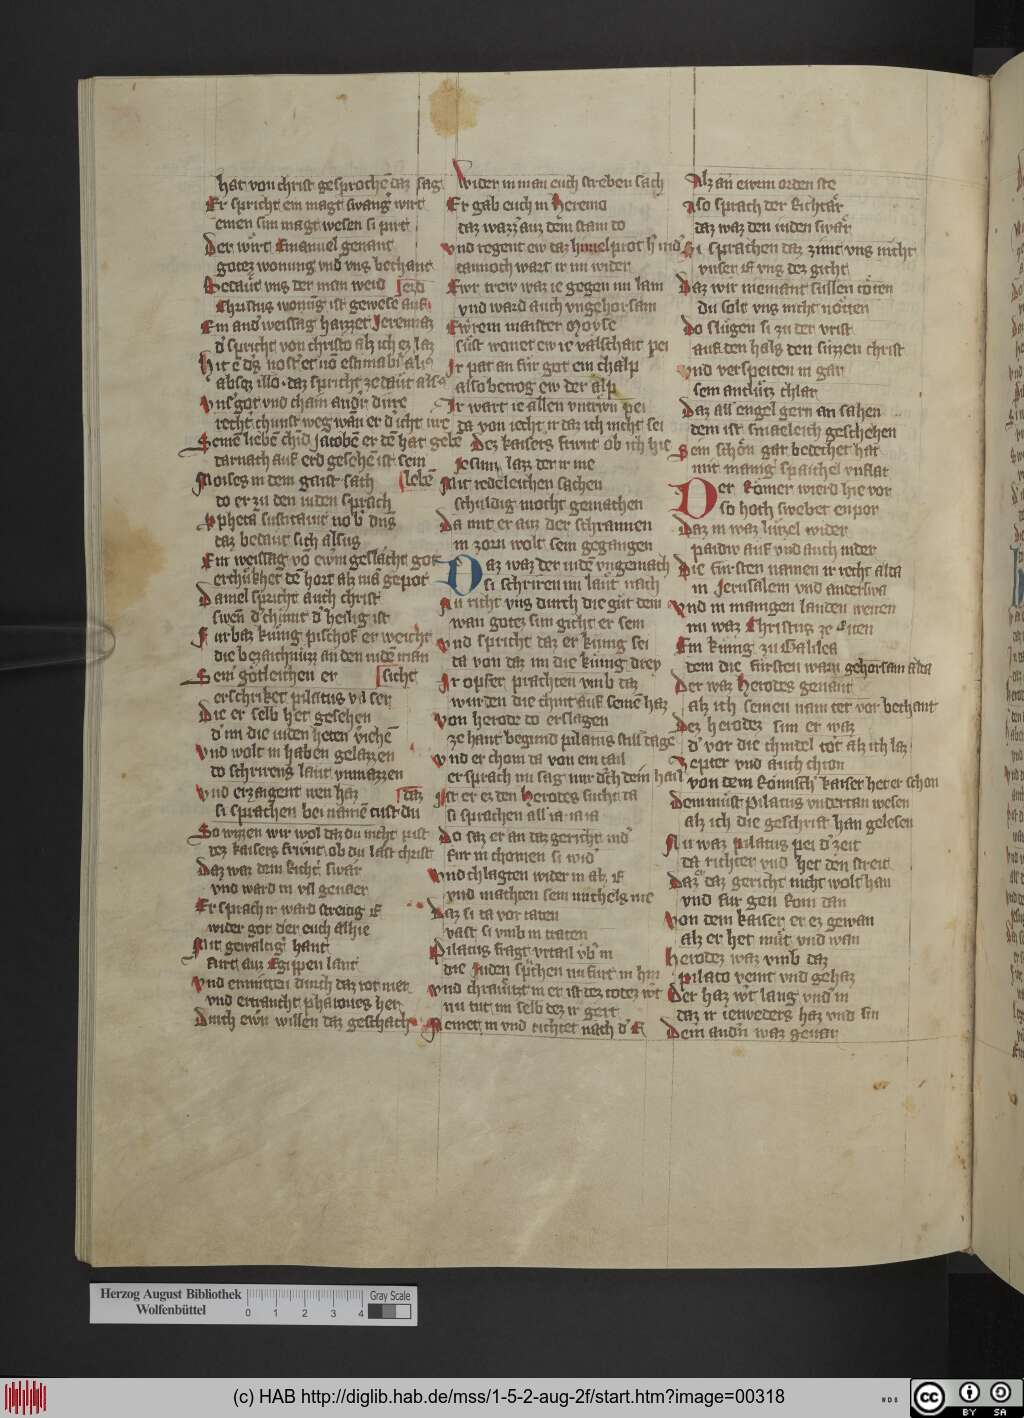 hat von christ gesprochē daz sag
Er spricht ein magt swang̾ wirt
einen sun magt wesen si pirt
Der wirt Emanuel genant
gotez wonung vnd vns bechant
Bedaüt vns der man weid Jerd
Christus wonūg ist gewesē auf
Ein and̾ weissag haizzet Jeremias
d̾ spricht von christo alz ich ez laz
Hic ē ds̄ nost̾ et nō estimabit̾ aliꝰ
absqz illo · daz spricht ze daüt alsꝰ
Vns̾ got vnd chain and̾ dire
recht chunst weg wan er d̾ icht ire
Seinē liebē chīd Jacobē er dē hat gebē
darnach auf erd gesehē ist sein
Moises in dem gaist sach lebē
do er zu den iuden sprach
Pphetā suscitauit vob̾ dn̄s
daz bedaut sich alsus
Ein weissag vō ewrm geslächt got
erchükhet dē hort alz mā gepot
Daniel spricht auch christ
swen d̾ chümt d̾ heilig ist
Fürbaz künig pischof er weicht
die bezaichnüzz an den iudē man
Sein götleichen er sicht
erschriket pilatus vil ser
Die er selb het gesehen
d̾ im die iuden heten v̾iehē
Vnd wolt in haben gelazzen
do schrirens laut vnmazzen
Vnd erzaigent wen haz daz
si sprachen bei namē tust du
So wizzen wir wol daz du nicht pist
dez kaisers frwnt ob du last christ
Daz waz dem richt̾ swär
vnd ward in vil geuaer
Er sprach ir ward streitig ie
wider got d̾ er euch alhie
Mit gewaltig̾ hant
fürt auz Egippen lant
Vnd enmitten durch daz rot mer
vnd ertraucht pharones her
Durch ewrn willen daz geschach
Wider in man euch streben sach
Er gab euch in Heremo
daz wazz̾ auz dem stain do
Vnd regent ew daz himelprot h̾ nid̾
dannoch wart ir im wider
Ewr trew waz ie gegen im lam
vnd ward auch vngehorsam
Ewrem maister Moyse
süst wonet ew ie valschait pei
Ir pat an für got ein chalp
also betrog ew der alp
Ir wart ie allen vntriwn pei
da von iecht ir daz ich nicht sei
Dez kaisers frwnt ob ich hie
Jesum lazz der ir nie
Mit redeleichen sachen
schuldig mocht gemachen
Da mit er auz der schrannen
in zorn wolt sein gegangen
Daz waz der iudē vngemach
si schriren im laut nach
Nu richt vns durch die güt dein
wan gotez sun gicht er sein
Vnd spricht daz er künig sei
da von daz im die künig drey
Ir opfer prachten vmb daz
wurden die chint auf seinē haz
Von herode do erslagen
ze hant begund pilatus still dagē
Vnd er chom da von ein tail
er sprach nu sag mir d̾ch dein hail
Ist er ez den Herodes sucht da
si sprachen all ia ia ia
Do saz er an daz gericht nid̾
für in chomen si wid̾
Vnd chlagten wider in alz ie
vnd machten sein nicthels nie
Daz si da vor taten
vast si vmb in traten
Pilatus fragt vrtail vb̾ in
die Juden sp̾chen nu fürt in hin
Vnd chraützt in er ist dez todez w̾t
nu tut im selb dez ir gert
Nemet in vnd richtet nach d̾ E
Alz an ewrm orden ste
Also sprach der Richtär
daz waz den iuden swär
Si sprachen daz zimt vns nicht
vnser E vns dez gicht
Daz wir niemant süllen töten
du solt vns nicht nötten
Do slügen si zu der vrist
auf den hals den süzzen christ
Vnd verspeiten in gar
sein antlütz chlar
Daz all engel gern an sahen
dem ist smaeleich geschehen
Sein schön gar bedechet hat
mit manig̾ spaichel vnflat
Der Romer wierd hie vor
so hoch sweber enpor
Daz in waz lützel wider
paidiw auf vnd auch nider
Die fürsten namen ir recht alda
in Jerusalem vnd anderswa
Vnd in mangen landen weiten
nu waz Christus ze Eiten
Ein künig zu Galilea
dem die fürsten warn gehorsam alda
Der waz Herodes genant
alz ich seinen namen ter vor bechant
Dez herodez sun er waz
d̾ vor die chindel tot alz ich laz
Zepter vnd auch chron
von dem Romisch̾ kaiser het er schon
Dem müst Pilatus vndertan wesen
alz ich die geschrift han gelesen
Nu waz pilatus pei d̾ zeit
da richter vnd het den streit
Daz d̾ daz gericht nicht wolt han
vnd für gen Rom dan
Von dem kaiser er ez gewan
alz er het müt vnd wan
Herodez waz vmb daz
pilato veint vnd gehaz
Der haz w̾t lang vnd̾ in
daz ir ietweders haz vnd sin
Dem and̾n waz geuar
Herzog August Bibliothek
Wolfenbüttel
0 1 2 3 4
Gray Scale
(c) HAB http://diglib.hab.de/mss/1-5-2-aug-2f/start.htm?image=00318
WDB
cc BY SA